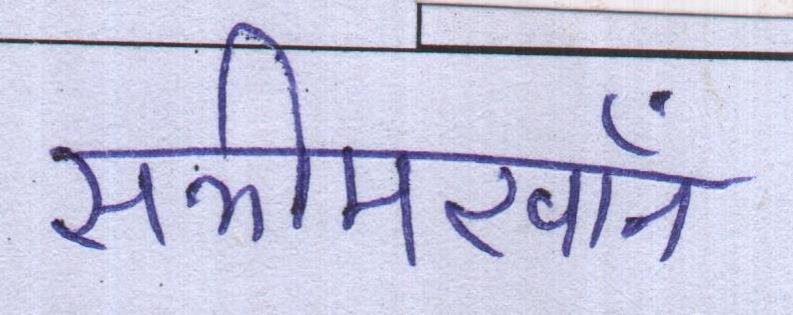 सलीमखाँन